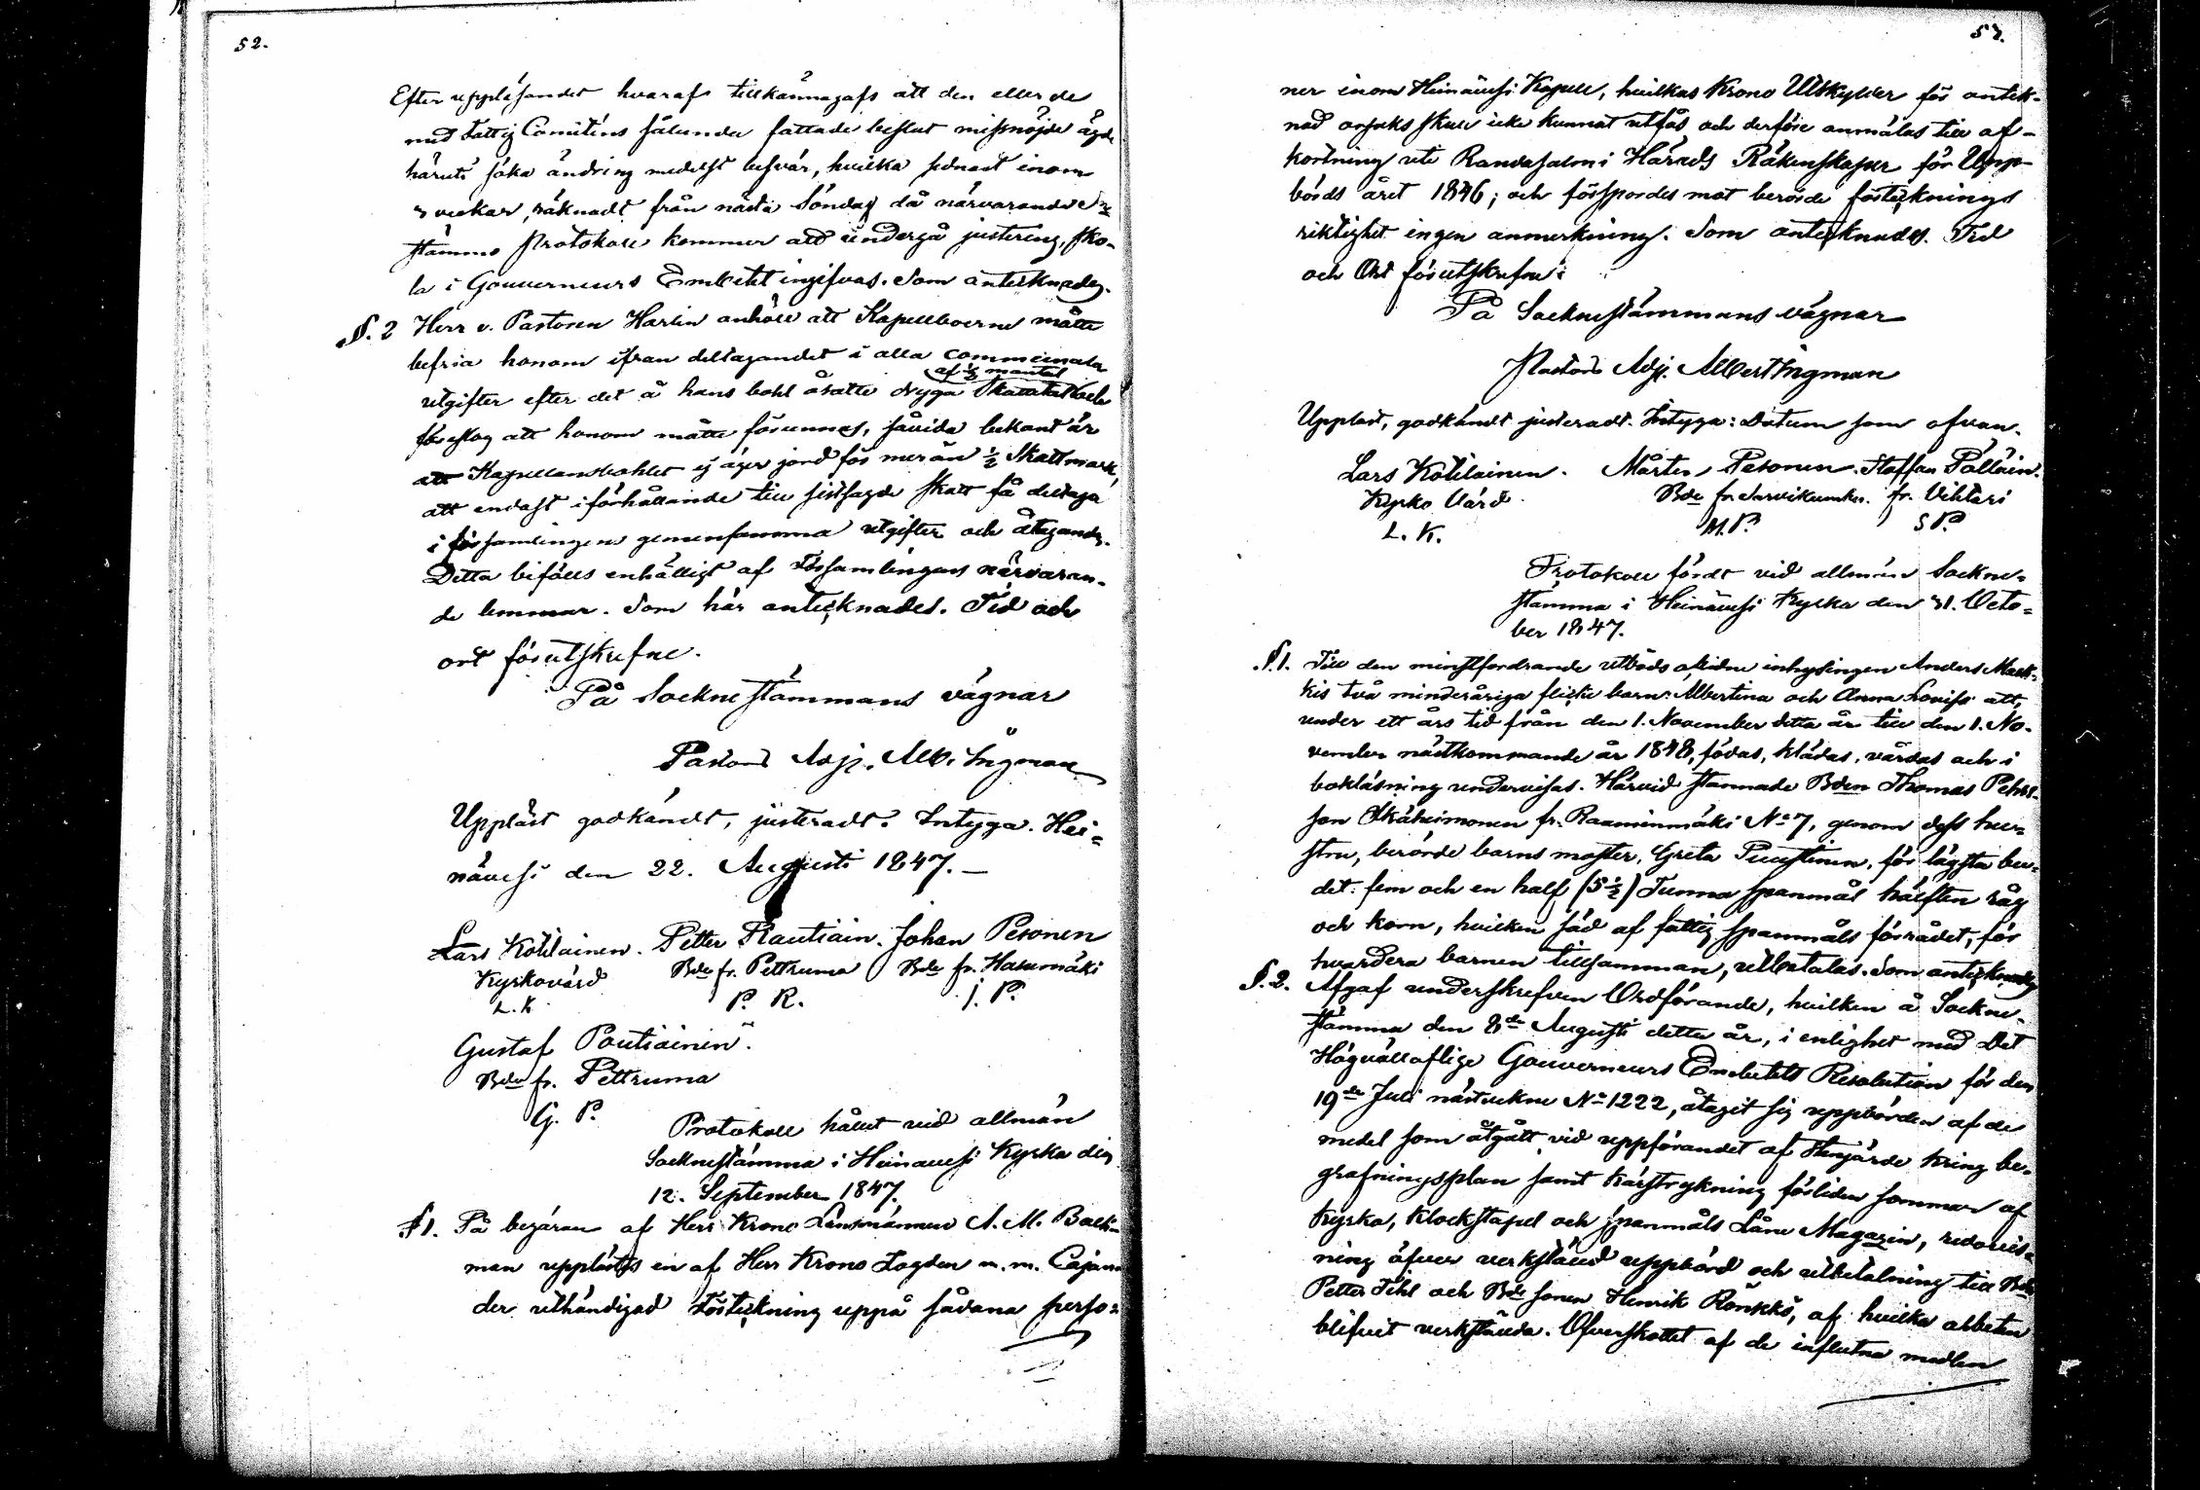 52.
Efter uppläsandet hvaraf tillkännagafs att den eller de
med Fattig Comiténs sålunda fattade beslut missnöjde äga
häruti söka ändring medelst besvär, hvilka sednast inom
veckor, räknadt från nästa Söndag då närvarande
stämmo Protokoll kommer att undergå justering, sko-
la i Gouverneurs Embetet ingifvas. Som antecknades.
§. 2 Herr v. Pastoren Harlin anhöll att Kapellboerne måtte
befria honom ifran deltagandet i alla communala
af ½ mantal
utgifter efter det å hans bohl åsatte dryga Skattetal och
föreslog att honom måtte förunnas, såvida bekant är
att Kapellansbohlet ej äger jord för mer än ½ Skattmark,
att endast i förhållande till sistsagde skatt få deltaga
i församlingens gemensamma utgifter och åtagande.
Detta bifölls enhälligt af Församlingens närvaran-
de lemmar. Som här antecknades. Tid och
ort förutskrefne.
På Sockne stämmans vägnar
Pastors Adj. Alb. Ingman
Uppläst godkändt, justeradt. Intyga. Hei-
nävesi den 22. Augusti 1847. –
Lars Kötiläinen. Petter Rautiain. Johan Pesonen
Kyrkovärd Bde fr. Pettruma Bde fr. Hasumäki
L. K. P. R. J. P.
Gustaf Poutiainen.
Bde fr. Pettruma
G. P.
Protokoll hållit vid allmän
Socknestämma i Heinavesi Kyrka den
12. September 1847.
§1. På begäran af Herr Krono Länsmannen A. M. Back-
man upplästes en af Herr Krono Fogden m. m. Cajan
der uthändigad Förteckning uppå sådana perso-
53.
ner inom Heinävesi Kapell, hvilkas Krono Utskylder för anteck-
nad orsaks skull icke kunnat utfås och derföre anmälas till af-
kortning uti Randasalmi Härads Räkenskaper för Upp-
börds året 1846; och försspordes mot berörde förtecknings
riktighet ingen anmerkning. Som antecknades. Tid
och Ort förutskrefne:
På Socknestämmans vägnar
Pastors Adj. Albert Ingman
Uppläst, godkändt justeradt. Intyga: Datum som ofvan.
Lars Kötiläinen. Mårten Pesonen. Staffan Pölläin.
Kyrko Värd Bde fr. Sarvikumku. fr. Vihtari
L. K. M. P. S P.
Protokoll fördt vid allmän Sockne-
stämma i Heinävesi Kyrka den 31. Octo-
ber 1847.
§1. Till den minstfordrande utböds aflidne inhysingen Anders Mack-
kis två minderåriga flicke barn: Albertina och Anna Lovisa att,
under ett års tid från den 1. November detta år till den 1. No-
vember nästkommande år 1848, födas, klädas, vårdas och i
bokläsning undervisas. Härvid stannade Bden Thomas Pehrs-
son fr. Raaminmäki No 7, genom dess hu-
stru, berörde barns moster, Greta Puustinen, för lägsta bu-
det: fem och en half (5½) Tunna spanmål hälften råg
och korn, hvilken säd af fattig spanmåls förrådet, för
hvardera barnen tillsamman, utbetalas. Som antecknades
§. 2. Afgaf underskrefven Ordförande, hvilken å Sockne-
stämma den 8de Augusti detta år, i enlighet med Det
Högvällofliga Gouverneurs Embetets Resolution för den
19de Juli nästvekne No 1222, åtagit sig uppbörden af de
medel som åtgått vid uppförandet af stengärde kring be-
grafningsplan samt kärstrykning förliden sommar af
Kyrka, Klockstapel och spanmåls Låne Magazin, redovis-
ning öfver verkställd uppbörd och utbetalning till Bden
Petter Tihl och Bde sonen Henrik Rönkkö, af hvilka arbeten
blifvit verkställda. Öfverskottet af de influtna medlen